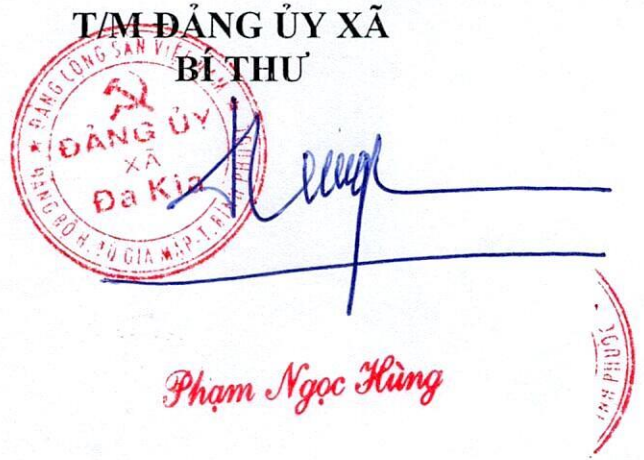 T/M ĐẢNG ỦY XÃ
BÍ THƯ
ĐẢNG CỘNG SẢN VIỆT NAM
ĐẢNG ỦY
XÃ
Đa Kia
ĐẢNG BỘ H. BÙ GIA MẬP-T. BÌNH PHƯỚC
Phạm Ngọc Hùng
PHƯỚC